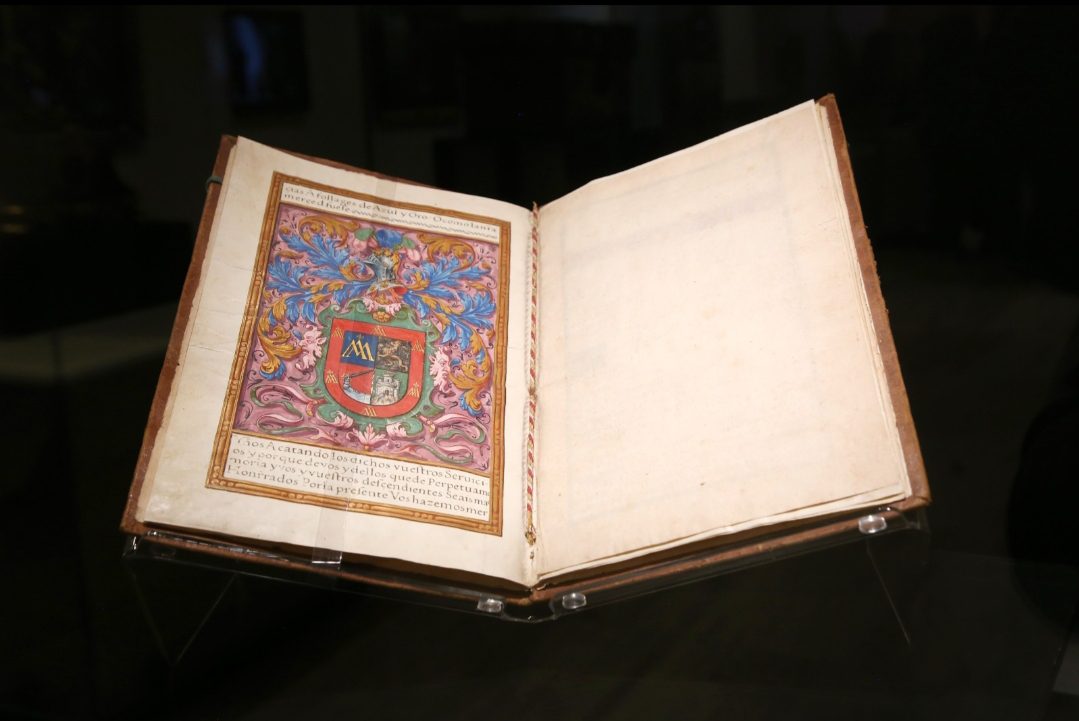 cias A follages de Azul y Oro Ocomo la nra
merced fuese
ños Acatando los dichos vuestros Servici
os y porque de vos y dellos quede Perpetuam
moria y vos y vuestros descendientes Seais ma
Honrrados Por la presente Vos hazemos mer